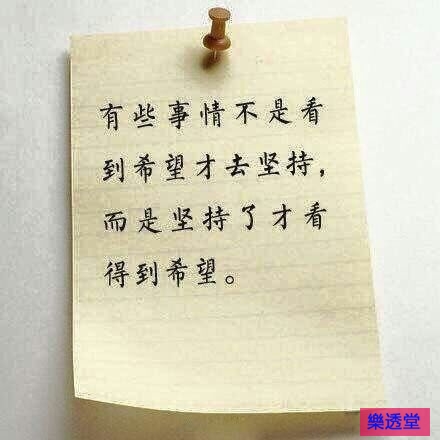 有些事情不是看
到希望才去坚持，
而是坚持了才看
得到希望。
樂透堂